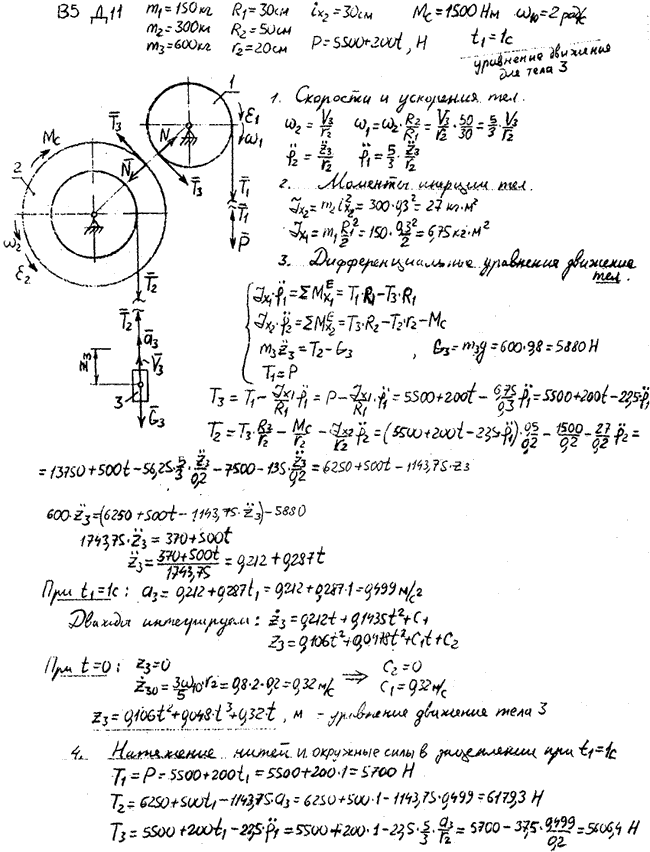 В5 Д11 m₁=150кг R₁=30см i_{x2}=30см M_C=1500 Нм ω₁₀=2 рад/с
m₂=300кг R₂=50см t₁=1с
m₃=600кг r₂=20см P=5500+200t, Н уравнение движения
для тела 3
1. Скорости и ускорения тел.
ω₂=V₃/r₂ ω₁=ω₂·R₂/R₁=V₃/r₂·50/30=5/3·V₃/r₂
φ̈₂=z̈₃/r₂ φ̈₁=5/3·z̈₃/r₂
2. Моменты инерции тел.
J_{x2}=m₂i²_{x2}=300·0,3²=27 кг·м²
J_{x1}=m₁R₁²/2=150·0,3²/2=6,75 кг·м²
3. Дифференциальные уравнения движения
тел.
J_{x1}·φ̈₁=ΣM^E_{x1}=T₁·R₁-T₃·R₁
J_{x2}·φ̈₂=ΣM^E_{x2}=T₃·R₂-T₂·r₂-M_C
m₃z̈₃=T₂-G₃ , G₃=m₃g=600·9,8=5880 Н
T₁=P
M_C T̄₃ N̄ N̄ 1 ε₁ ω₁
2 T̄₃ T̄₁
T̄₁
ω₂ ε₂ P̄
T̄₂
T̄₂ ā₃
V̄₃
3 Ḡ₃
T₃=T₁-J_{x1}/R₁·φ̈₁=P-J_{x1}/R₁·φ̈₁=5500+200t-6,75/0,3·φ̈₁=5500+200t-22,5·φ̈₁
T₂=T₃·R₂/r₂-M_C/r₂-J_{x2}/r₂·φ̈₂=(5500+200t-22,5·φ̈₁)·0,5/0,2-1500/0,2-27/0,2·φ̈₂=
=13750+500t-56,25·5/3·z̈₃/0,2-7500-135·z̈₃/0,2=6250+500t-1143,75·z₃
600·z̈₃=(6250+500t-1143,75·z̈₃)-5880
1743,75·z̈₃=370+500t
z̈₃=370+500t/1743,75=0,212+0,287t
При t₁=1с: a₃=0,212+0,287t₁=0,212+0,287·1=0,499 м/с²
Дважды интегрируем: ż₃=0,212t+0,1435t²+C₁
z₃=0,106t²+0,0478t³+C₁t+C₂
При t=0: z₃=0 C₂=0
ż₃₀=3ω₁₀/5·r₂=0,8·2·0,2=0,32 м/с ⇒ C₁=0,32 м/с
z₃=0,106t²+0,048·t³+0,32·t, м - уравнение движения тела 3
4. Натяжение нитей и окружные силы в зацеплении при t₁=1с
T₁=P=5500+200t₁=5500+200·1=5700 Н
T₂=6250+500t₁-1143,75·a₃=6250+500·1-1143,75·0,499=6179,3 Н
T₃=5500+200t₁-22,5·φ̈₁=5500+200·1-22,5·5/3·a₃/r₂=5700-37,5·0,499/0,2=5606,4 Н